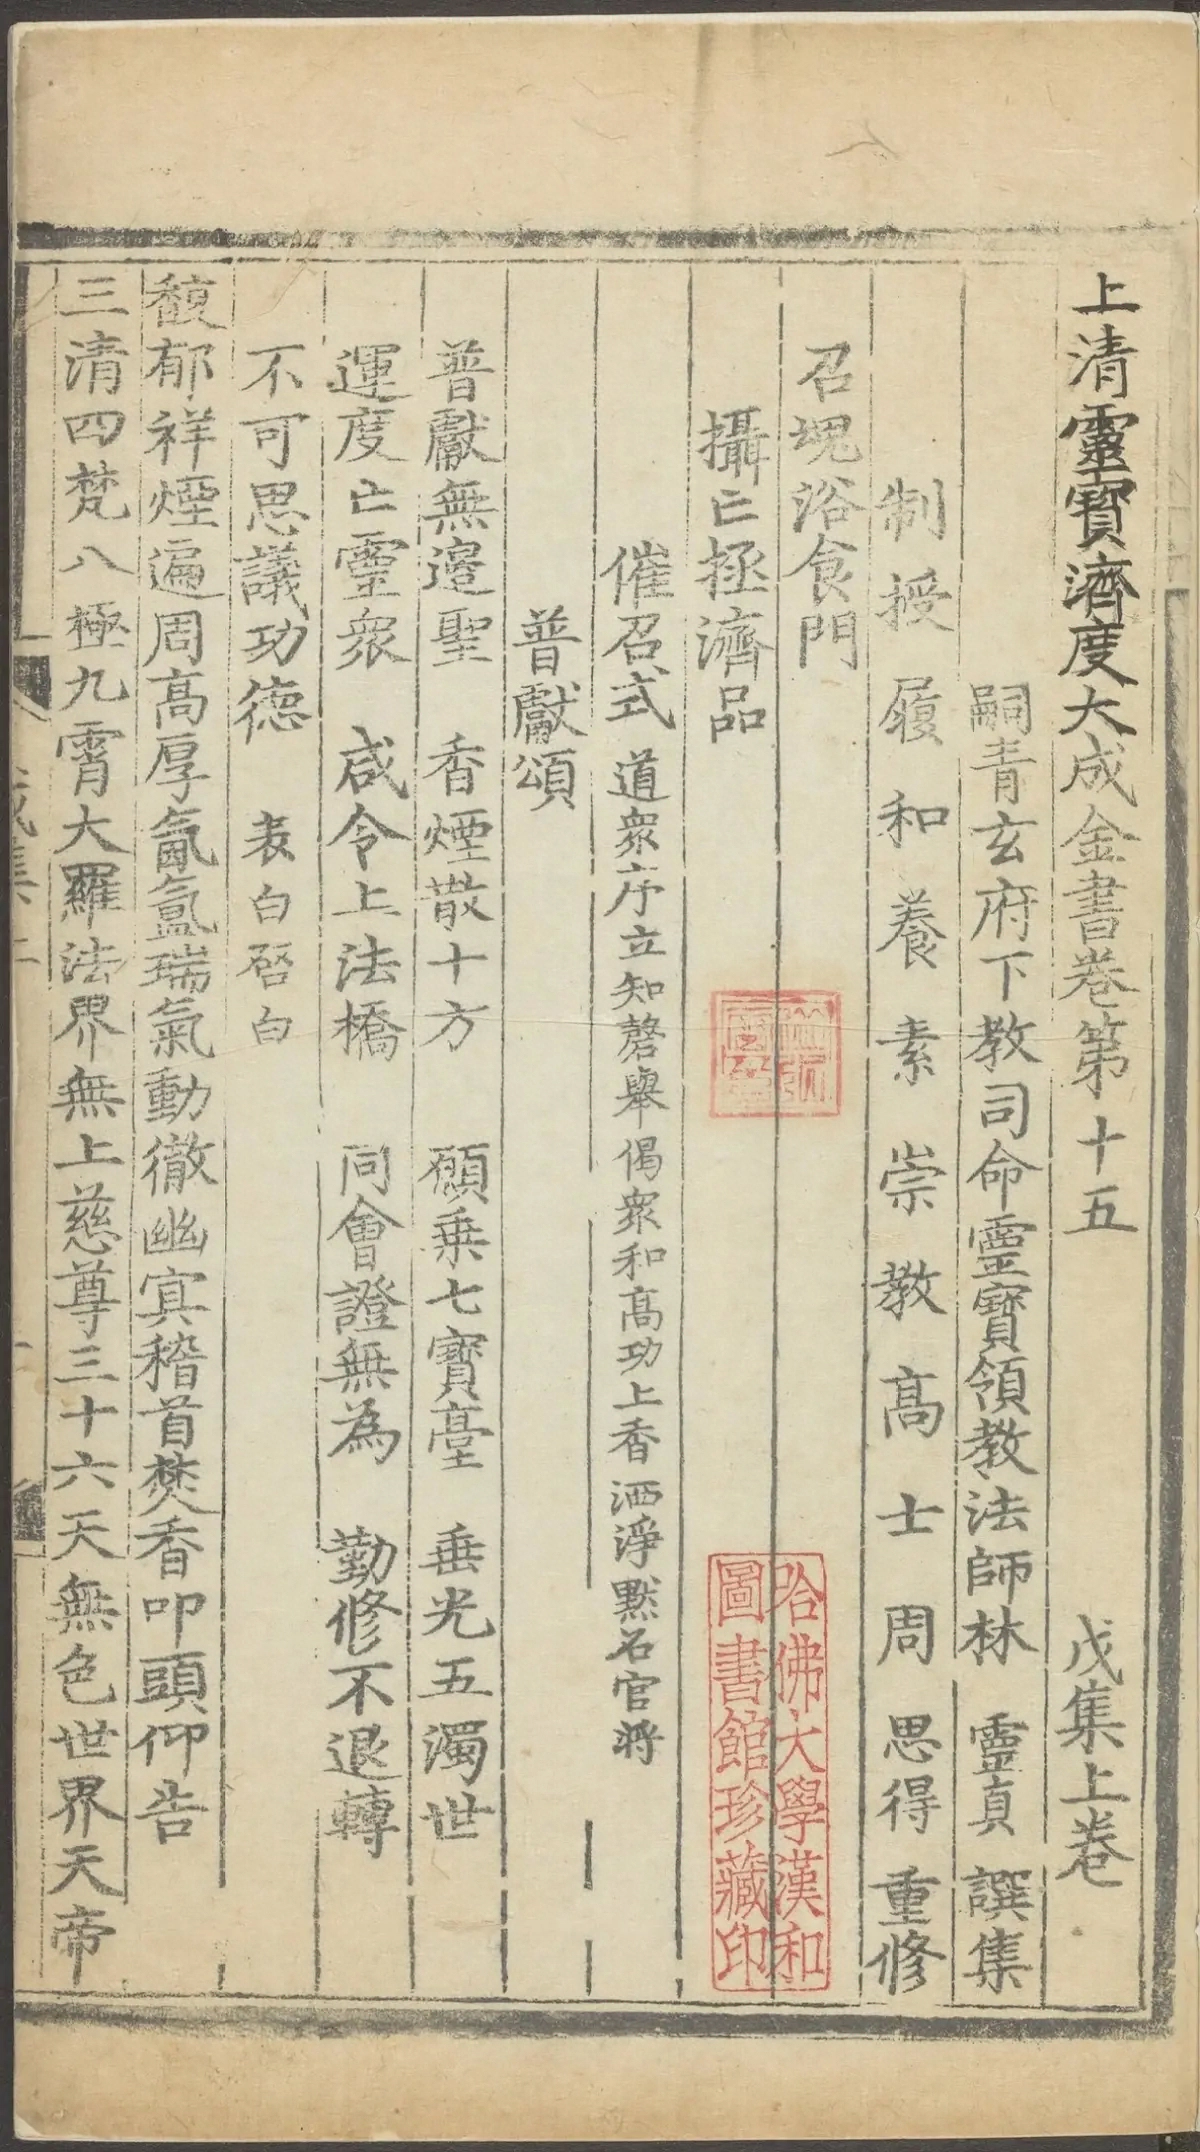 上清靈寶濟度大成金書卷第十五 戊集上卷
嗣青玄府下教司命靈寶領教法師林 靈真 譔集
制授履和養素崇教高士周 思得 重修
召魂浴食門
攝亡拯濟品
催召式 道衆序立知磬舉偈衆和高功上香洒淨默召官將
普獻頌
普獻無邉聖 香煙散十方 願乗七寳臺 垂光五濁世
運度亡靈衆 咸令上法橋 同會證無為 勤修不退轉
不可思議功德 表白啓白
馥郁祥煙遍周高厚氤氳瑞氣動徹幽冥稽首焚香叩頭仰告
三清四梵八極九霄大羅法界無上慈尊三十六天無色世界天帝
哈佛大學漢和
圖書館珍藏印